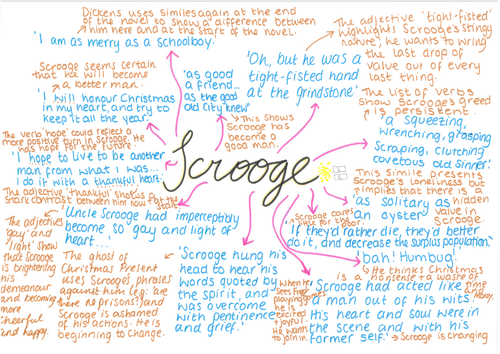 Dickens uses similes again at the end
of the novel to show a difference between
him here and at the start of the novel.
'I am as merry as a schoolboy.'
Scrooge seems certain
that he will become
a better man.
'I will honour Christmas
in my heart, and try to
keep it all the year.'
'as good
a friend...
as the good
old city knew'
This shows
Scrooge has
become a
good man.
'Oh, but he was a
tight-fisted hand
at the grindstone'
The adjective 'tight-fisted'
highlights Scrooge's stingy
nature; he wants to wring
the last drop of
value out of every
last thing.
The list of verbs
show Scrooge's greed
is persistent.
'a squeezing,
wrenching, grasping
Scraping, clutching
covetous old sinner.'
The verb 'hope' could reflect a
more positive turn in Scrooge. He
has hope for the future.
'I hope to live to be another
man from what I was...
I do it with a thankful heart.'
The adjective 'thankful' shows a
stark contrast between him now & at the
start.
Scrooge
This simile presents
Scrooge's loneliness but
implies that there is a
hidden
value in
Scrooge.
'as solitary as
an oyster'
Scrooge cares
little for the poor.
'If they'd rather die, they'd better
do it, and decrease the surplus population.'
'bah! Humbug'
He thinks Christmas
is a nonsense & a waste of
time and
money.
'Uncle Scrooge had imperceptibly
become so gay and light of
heart...'
The adjectives
'gay' and
'light' show
that Scrooge
is brightening
his
demeanour
and becoming
more
cheerful
and happy.
The ghost of
Christmas Present
uses Scrooge's phrases
against him (eg: 'are
there no prisons?') and
Scrooge is ashamed
of his actions. He is
beginning to change.
'Scrooge hung his
head to hear his
words quoted by
the spirit, and
was overcome
with penitence
and grief.'
When he
sees Fred
playing games
he is
excited +
joyful.
He wants
to join in.
'Scrooge had acted like
a man out of his wits.
His heart and soul were in
the scene and with his
former self.'
Scrooge is changing